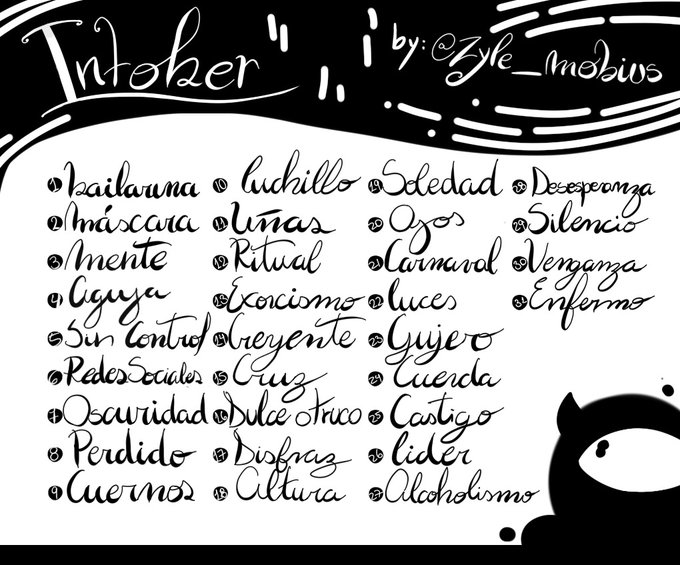 Intober
by: @Zyle_mobius
1 bailarina
2 máscara
3 mente
4 aguja
5 Sin Control
6 Redes Sociales
7 Oscuridad
8 Perdido
9 Cuernos
10 Cuchillo
11 Uñas
12 Ritual
13 Exorcismo
14 Creyente
15 Cruz
16 Dulce o truco
17 Disfraz
18 Altura
19 Soledad
20 Ojos
21 Carnaval
22 luces
23 Gujero
24 Cuerda
25 Castigo
26 lider
27 Alcoholismo
28 Desesperanza
29 Silencio
30 Venganza
31 Enfermo